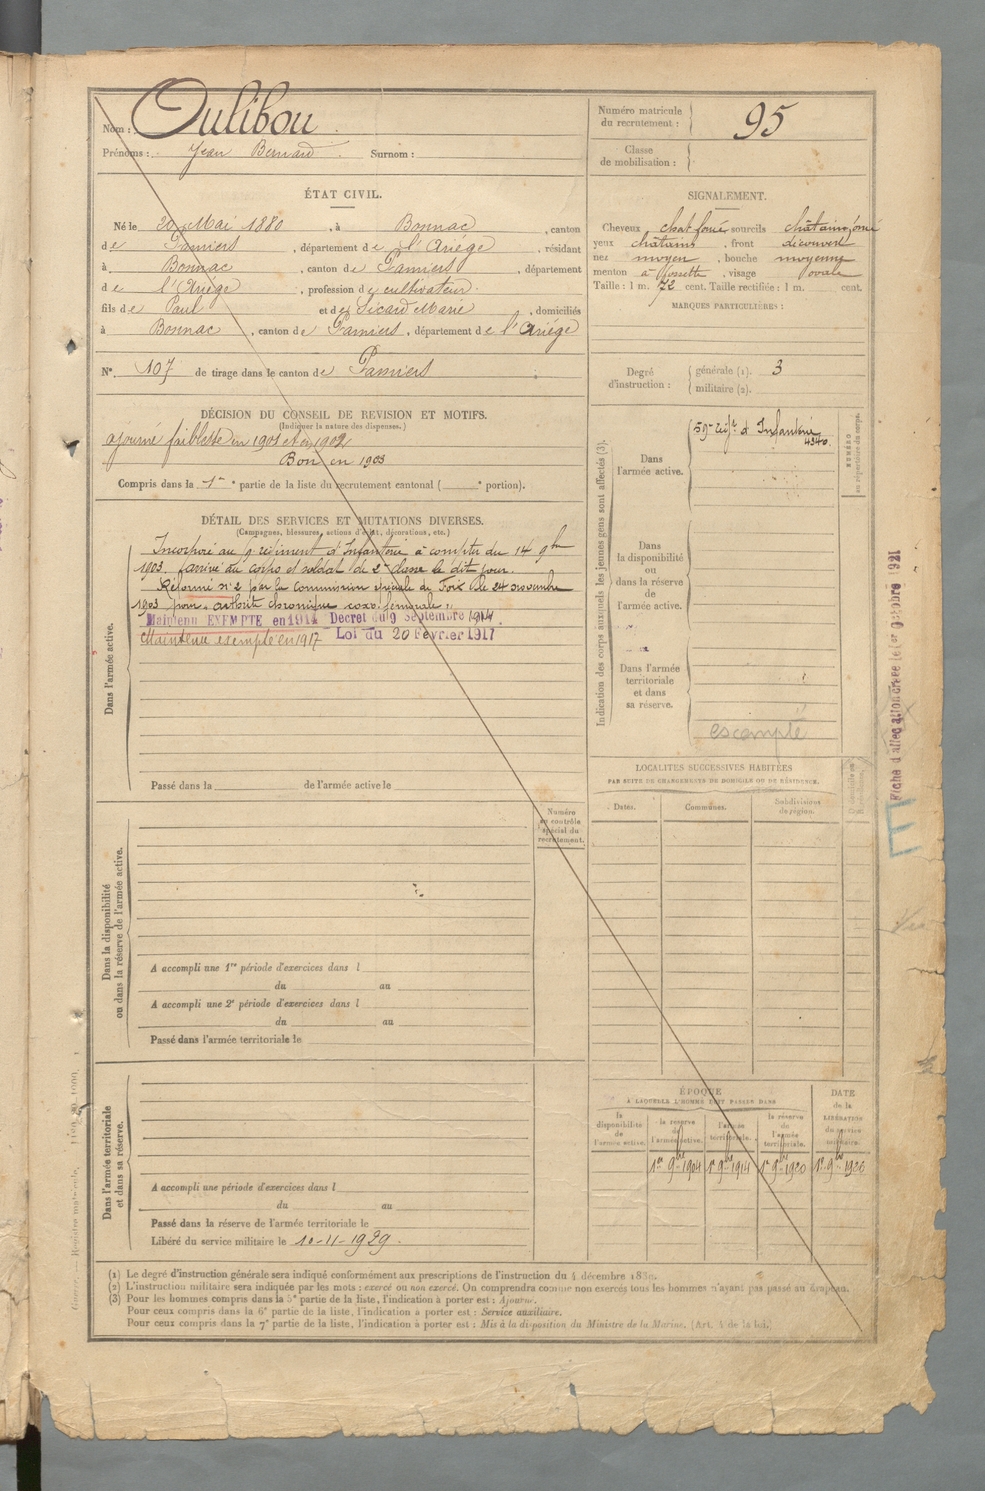 Nom : Oulibou
Prénoms : Jean Bernard Surnom :
Numéro matricule du recrutement : 95
Classe de mobilisation :
ÉTAT CIVIL.
Né le Mai 1880, à Bonnac, canton
de Pamiers, département de l'Ariége, résidant
à Bonnac, canton de Pamiers, département
de l'Ariége, profession de cultivateur.
fils de Paul et de Sicard Marie, domiciliés
à Bonnac, canton de Pamiers, département de l'Ariége
N° 107 de tirage dans le canton de Pamiers
SIGNALEMENT.
Cheveux chat foncé sourcils châtain foncé
yeux châtains, front découvert
nez moyen, bouche moyenne
menton à fossette, visage ovale
Taille : 1 m. 72 cent. Taille rectifiée : 1 m. cent.
MARQUES PARTICULIÈRES :
Degré d'instruction : générale (1). 3
militaire (2).
DÉCISION DU CONSEIL DE REVISION ET MOTIFS.
(Indiquer la nature des dispenses.)
ajourné faiblesse en 1901 et en 1902
Bon en 1903
Compris dans la 1re partie de la liste du recrutement cantonal ( e portion).
DÉTAIL DES SERVICES ET MUTATIONS DIVERSES.
(Campagnes, blessures, actions d'éclat, décorations, etc.)
Dans l'armée active.
Incorporé au régiment d'Infanterie à compter du 14 9bre
1903 arrivé au corps et soldat de 2e classe le dit jour.
Réformé n° 2 par la commission spéciale de Foix le 24 novembre
1903 pour arthrite chronique coxo fémorale.
Maintenu EXEMPTE en 1914 Decret du 9 Septembre 1914.
Maintenu exempté en 1917 Loi du 20 Février 1917
Passé dans la de l'armée active le
Indication des corps auxquels les jeunes gens sont affectés (3).
NUMÉRO au répertoire du corps.
Dans l'armée active.
59e régt d'Infanterie
4340.
Dans la disponibilité ou dans la réserve de l'armée active.
Dans l'armée territoriale et dans sa réserve.
escompté
Fiche d'allocation créée le 1er Octobre 1921
E
LOCALITÉS SUCCESSIVES HABITÉES
PAR SUITE DE CHANGEMENTS DE DOMICILE OU DE RÉSIDENCE.
Dates. Communes. Subdivisions de région.
Numéro au contrôle spécial du recrutement.
Dans la disponibilité ou dans la réserve de l'armée active.
A accompli une 1re période d'exercices dans l
du au
A accompli une 2e période d'exercices dans l
du au
Passé dans l'armée territoriale le
Dans l'armée territoriale et dans sa réserve.
A accompli une période d'exercices dans l
du au
Passé dans la réserve de l'armée territoriale le
Libéré du service militaire le 10-11-1929.
ÉPOQUE
À LAQUELLE L'HOMME DOIT PASSER DANS
DATE de la LIBÉRATION du service militaire.
la disponibilité de l'armée active. la réserve de l'armée active. l'armée territoriale. la réserve de l'armée territoriale.
1er 9bre 1904 1er 9bre 1914 1er 9bre 1920 1er 9bre 1926
(1) Le degré d'instruction générale sera indiqué conformément aux prescriptions de l'instruction du 4 décembre
(2) L'instruction militaire sera indiquée par les mots : exercé ou non exercé. On comprendra comme non exercés tous les hommes n'ayant pas passé au drapeau.
(3) Pour les hommes compris dans la 5e partie de la liste, l'indication à porter est : Ajourné.
Pour ceux compris dans la 6e partie de la liste, l'indication à porter est : Service auxiliaire.
Pour ceux compris dans la 7e partie de la liste, l'indication à porter est : Mis à la disposition du Ministre de la Marine. (Art. 4 de la loi.)